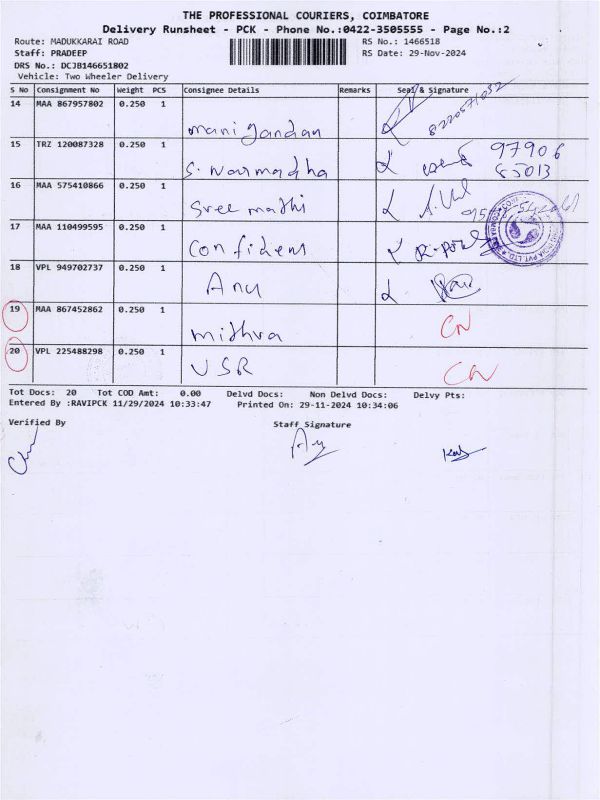 THE PROFESSIONAL COURIERS, COIMBATORE
Delivery Runsheet - PCK - Phone No.:0422-3505555 - Page No.:2
Route: MADUKKARAI ROAD RS No.: 1466518
Staff: PRADEEP RS Date: 29-Nov-2024
DRS No.: DCJB146651802
Vehicle: Two Wheeler Delivery
S No Consignment No Weight PCS Consignee Details Remarks Seal & Signature
14 MAA 867957802 0.250 1
manigandan
15 TRZ 120087328 0.250 1
S. Narmadha 97906
85013
16 MAA 575410866 0.250 1
Sree mathi
17 MAA 110499595 0.250 1
Confident
18 VPL 949702737 0.250 1
Anu
19 MAA 867452862 0.250 1
mithra CN
20 VPL 225488298 0.250 1
USR CN
Tot Docs: 20 Tot COD Amt: 0.00 Delvd Docs: Non Delvd Docs: Delvy Pts:
Entered By :RAVIPCK 11/29/2024 10:33:47 Printed On: 29-11-2024 10:34:06
Verified By Staff Signature